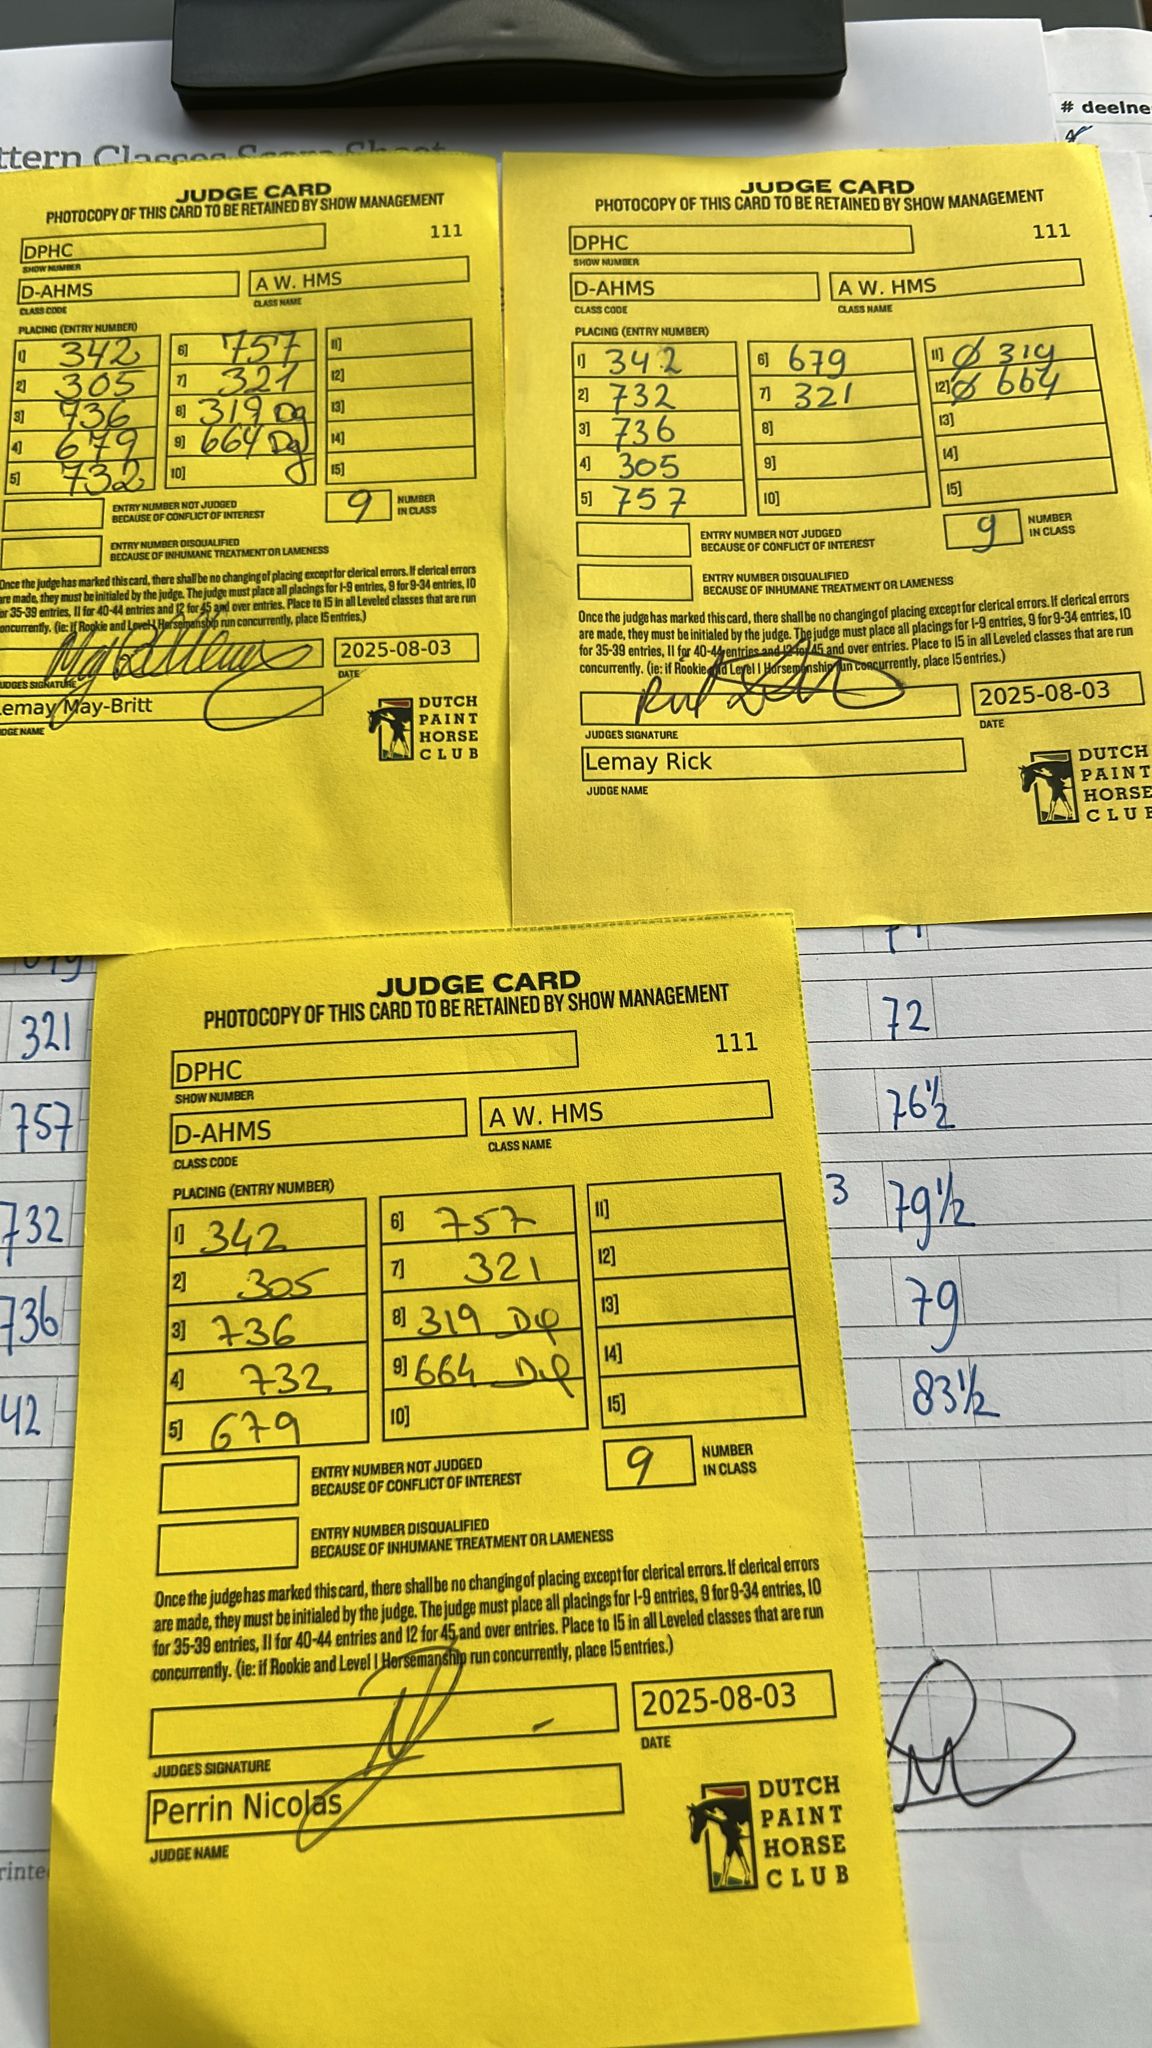 # deelne
ttern Classes Score Sheet
JUDGE CARD
PHOTOCOPY OF THIS CARD TO BE RETAINED BY SHOW MANAGEMENT
DPHC
111
SHOW NUMBER
D-AHMS
A W. HMS
CLASS CODE
CLASS NAME
PLACING (ENTRY NUMBER)
1] 342
2] 305
3] 736
4] 679
5] 732
6] 757
7] 321
8] 319 Dq
9] 664 Dq
10]
11]
12]
13]
14]
15]
ENTRY NUMBER NOT JUDGED
BECAUSE OF CONFLICT OF INTEREST
9
NUMBER
IN CLASS
ENTRY NUMBER DISQUALIFIED
BECAUSE OF INHUMANE TREATMENT OR LAMENESS
Once the judge has marked this card, there shall be no changing of placing except for clerical errors. If clerical errors
are made, they must be initialed by the judge. The judge must place all placings for 1-9 entries, 9 for 9-34 entries, 10
or 35-39 entries, 11 for 40-44 entries and 12 for 45 and over entries. Place to 15 in all Leveled classes that are run
oncurrently. (ie: if Rookie and Level 1 Horsemanship run concurrently, place 15 entries.)
2025-08-03
UDGES SIGNATURE
DATE
emay May-Britt
DGE NAME
DUTCH
PAINT
HORSE
CLUB
JUDGE CARD
PHOTOCOPY OF THIS CARD TO BE RETAINED BY SHOW MANAGEMENT
DPHC
111
SHOW NUMBER
D-AHMS
A W. HMS
CLASS CODE
CLASS NAME
PLACING (ENTRY NUMBER)
1] 342
2] 732
3] 736
4] 305
5] 757
6] 679
7] 321
8]
9]
10]
11] Ø 319
12] Ø 664
13]
14]
15]
ENTRY NUMBER NOT JUDGED
BECAUSE OF CONFLICT OF INTEREST
9
NUMBER
IN CLASS
ENTRY NUMBER DISQUALIFIED
BECAUSE OF INHUMANE TREATMENT OR LAMENESS
Once the judge has marked this card, there shall be no changing of placing except for clerical errors. If clerical errors
are made, they must be initialed by the judge. The judge must place all placings for 1-9 entries, 9 for 9-34 entries, 10
for 35-39 entries, 11 for 40-44 entries and 12 for 45 and over entries. Place to 15 in all Leveled classes that are run
concurrently. (ie: if Rookie and Level 1 Horsemanship run concurrently, place 15 entries.)
2025-08-03
JUDGES SIGNATURE
DATE
Lemay Rick
JUDGE NAME
DUTCH
PAINT
HORSE
CLUB
321
72
757
76½
732
3
79½
736
79
42
83½
JUDGE CARD
PHOTOCOPY OF THIS CARD TO BE RETAINED BY SHOW MANAGEMENT
DPHC
111
SHOW NUMBER
D-AHMS
A W. HMS
CLASS CODE
CLASS NAME
PLACING (ENTRY NUMBER)
1] 342
2] 305
3] 736
4] 732
5] 679
6] 757
7] 321
8] 319 Dq
9] 664 Dq
10]
11]
12]
13]
14]
15]
ENTRY NUMBER NOT JUDGED
BECAUSE OF CONFLICT OF INTEREST
9
NUMBER
IN CLASS
ENTRY NUMBER DISQUALIFIED
BECAUSE OF INHUMANE TREATMENT OR LAMENESS
Once the judge has marked this card, there shall be no changing of placing except for clerical errors. If clerical errors
are made, they must be initialed by the judge. The judge must place all placings for 1-9 entries, 9 for 9-34 entries, 10
for 35-39 entries, 11 for 40-44 entries and 12 for 45 and over entries. Place to 15 in all Leveled classes that are run
concurrently. (ie: if Rookie and Level 1 Horsemanship run concurrently, place 15 entries.)
2025-08-03
JUDGES SIGNATURE
DATE
Perrin Nicolas
JUDGE NAME
DUTCH
PAINT
HORSE
CLUB
rinte